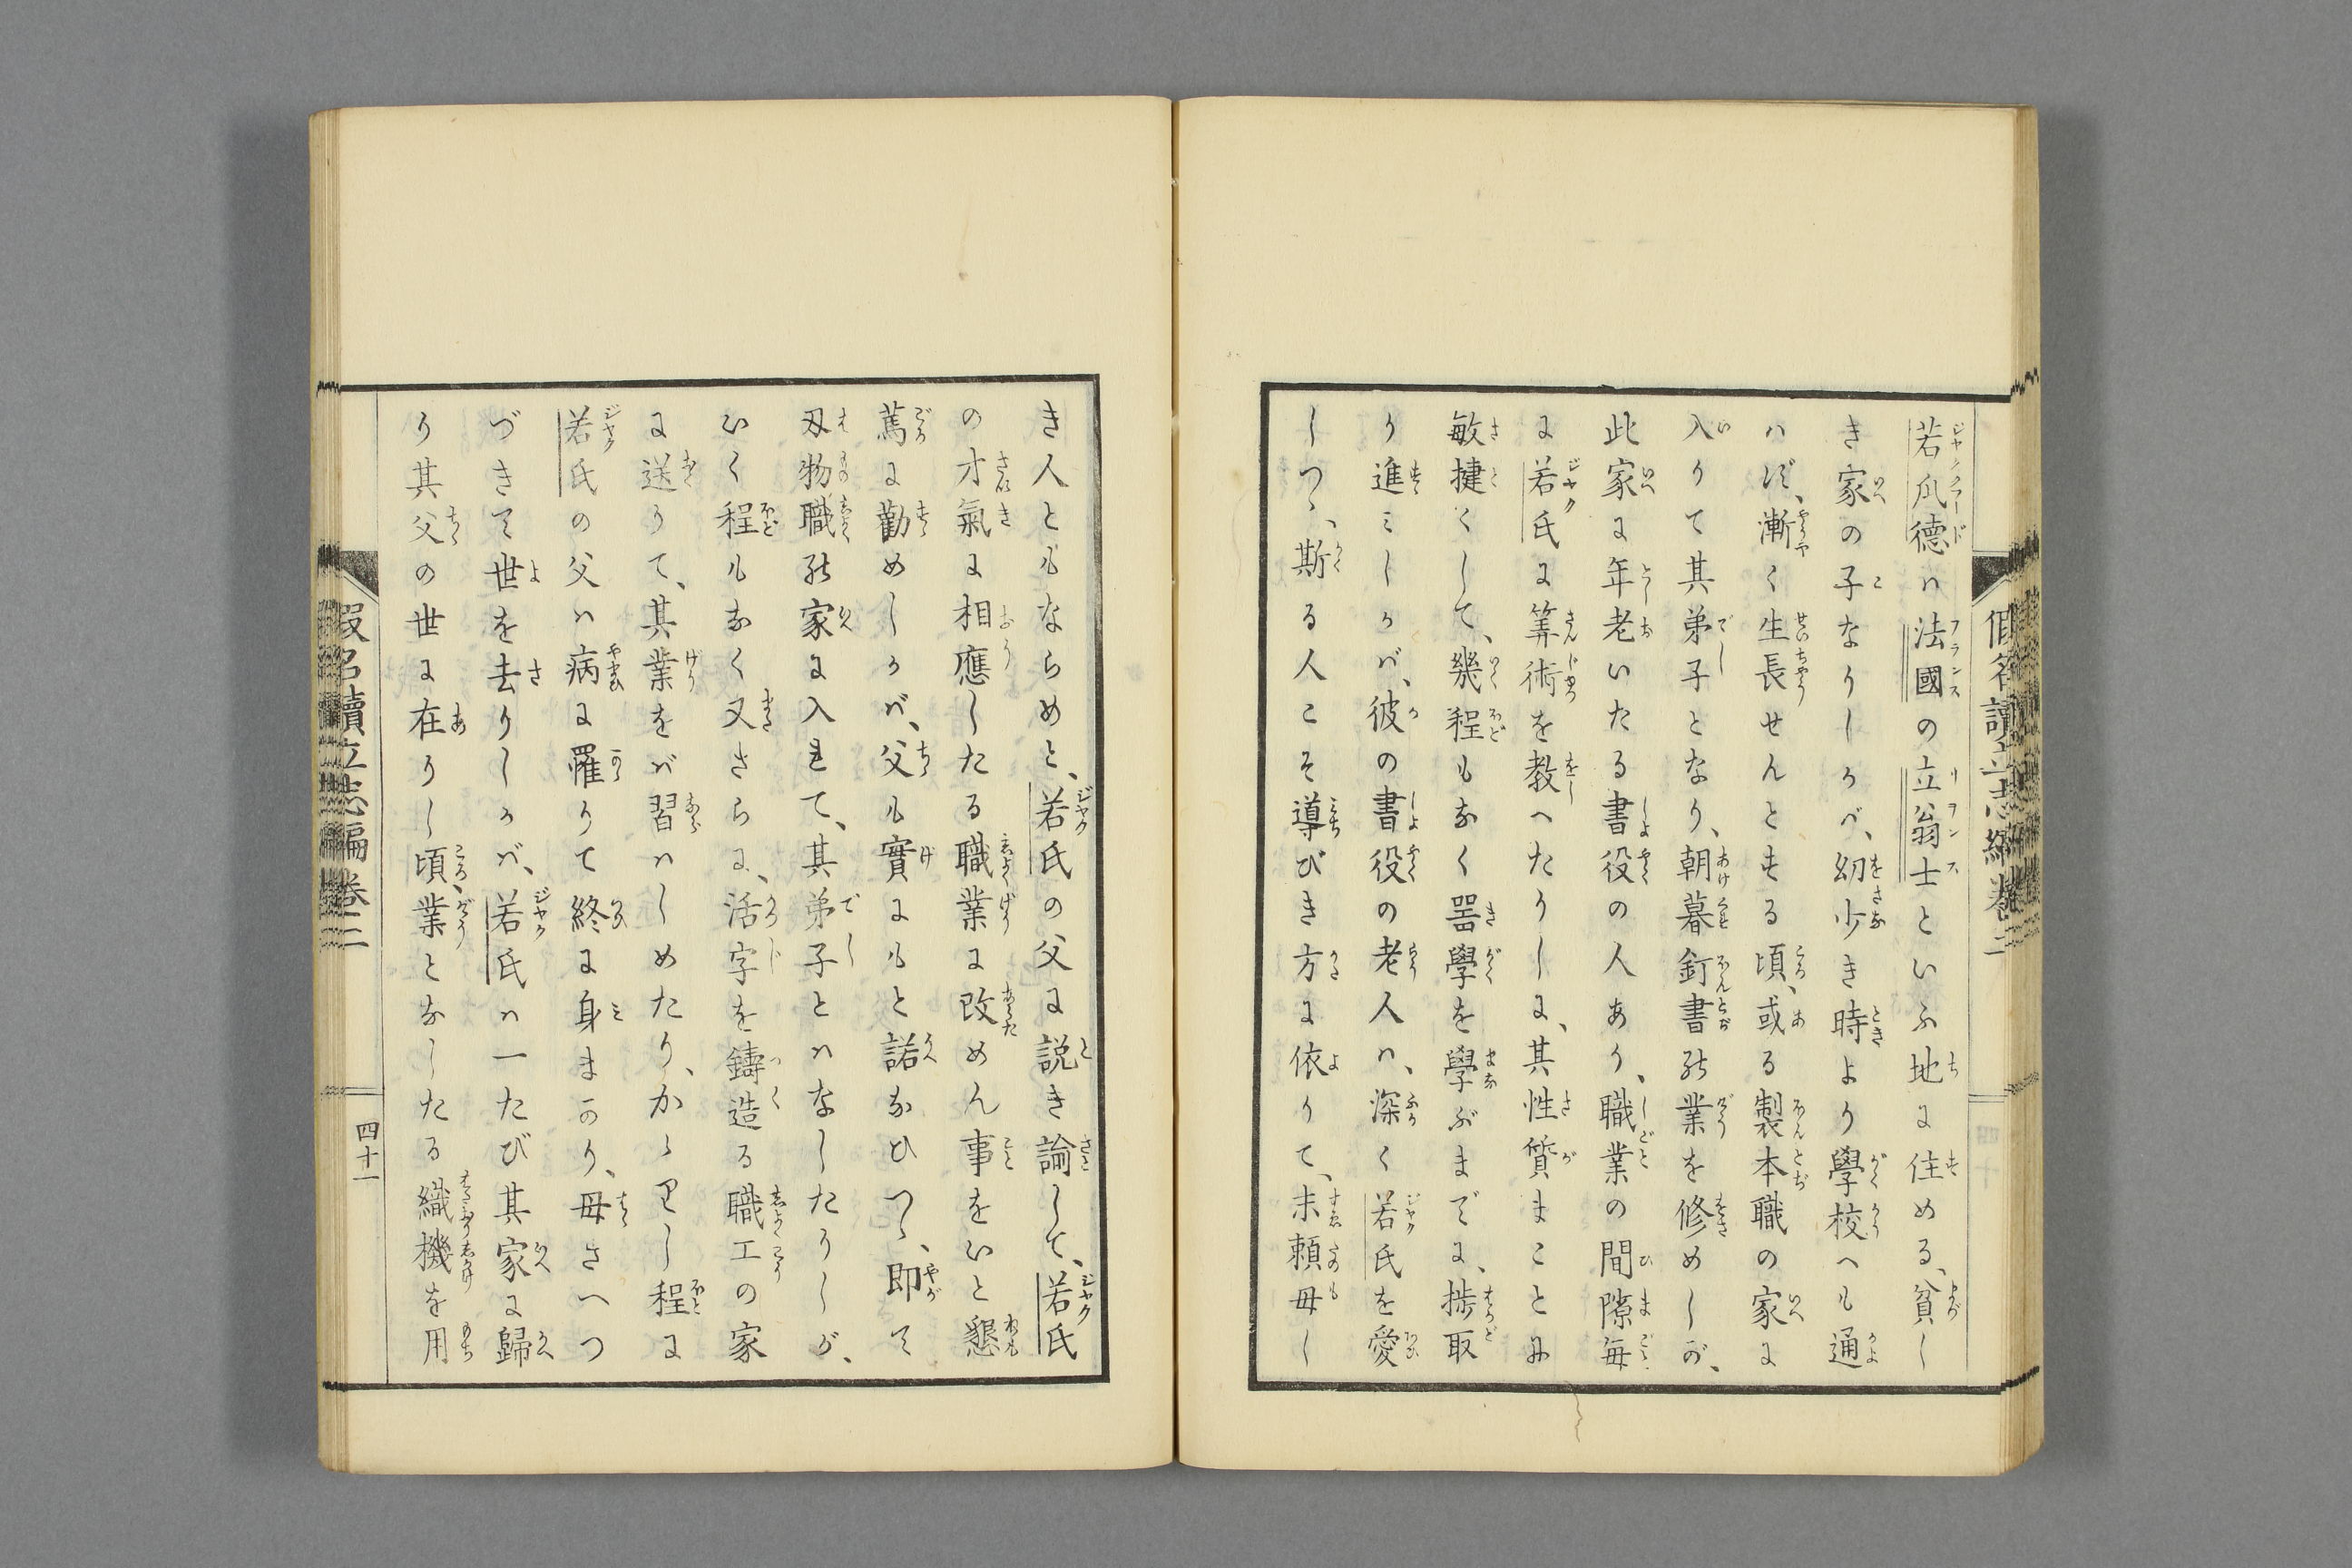 若爪德ハ法國の立翁士といふ地に住める、貧し
き家の子なりしかバ、幼少き時より學校へも通
ハず、漸く生長せんとする頃、或る製本職の家に
入りて其弟子となり、朝暮釘書の業を修めしが、
此家に年老いたる書役の人あり、職業の間隙毎
に若氏に筭術を教へたりしに、其性質まことに
敏捷くして、幾程もなく噐學を學ぶまでに、捗取
り進ミしかバ、彼の書役の老人ハ、深く若氏を愛
しつゝ、斯る人こそ導びき方に依りて、末頼母し
き人ともならめと、若氏の父に説き諭して、若氏
の才氣に相應したる職業に改めん事をいと懇
篤に勸めしかバ、父も實にもと諾なひつゝ、即て
刄物職の家に入れて、其弟子とハなしたりしが、
いく程もなく又さらに、活字を鑄造る職工の家
に送りて、其業をバ習ハしめたり、かゝりし程に
若氏の父ハ病に罹りて終に身まかり、母さへつ
づきて世を去りしかバ、若氏ハ一たび其家に歸
り其父の世に在りし頃、業となしたる織機を用
假名讀立志編 卷二
四十一
假名讀立志編 卷二